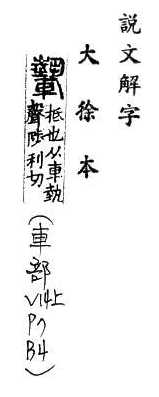 説文解字
大徐本
抵也从車埶
聲陟利切
(車部
V14上
P7
B4)